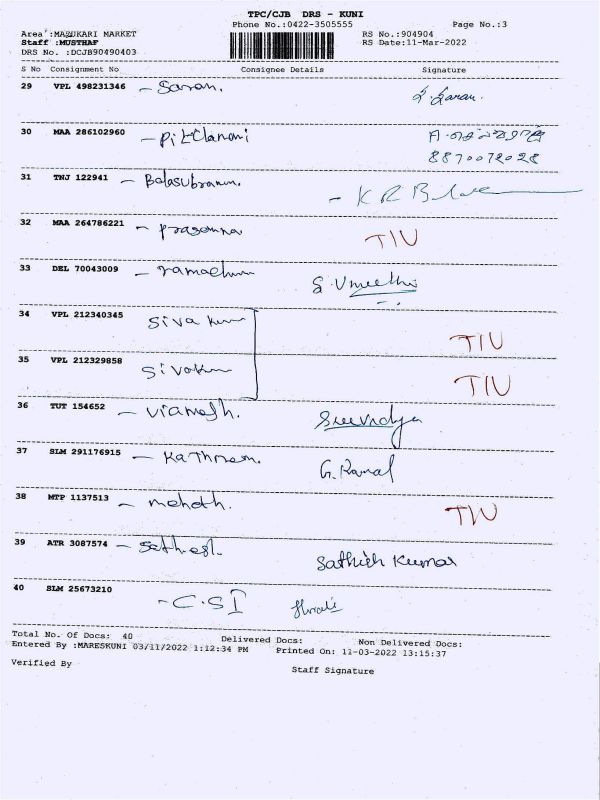 TPC/CJB DRS - KUNI
Phone No.:0422-3505555 Page No.:3
Area :MAZUKARI MARKET RS No.:904904
Staff :MUSTHAF RS Date:11-Mar-2022
DRS No. :DCJB90490403
S No Consignment No Consignee Details Signature
29 VPL 498231346 - Saran. S. Saran.
30 MAA 286102960 -
8870072028
31 TNJ 122941 - Balasubram. - K R Bala
32 MAA 264786221 - Prasanna TIU
33 DEL 70043009 -
34 VPL 212340345 Siva kum TIU
35 VPL 212329858 Sivakum TIU
36 TUT 154652 - Sreevidya
37 SLM 291176915 - G. Kamal
38 MTP 1137513 - TIU
39 ATR 3087574 - Sathish Kumar
40 SLM 25673210 - C.SI
Total No. Of Docs: 40 Delivered Docs: Non Delivered Docs:
Entered By :MARESKUNI 03/11/2022 1:12:34 PM Printed On: 11-03-2022 13:15:37
Verified By Staff Signature